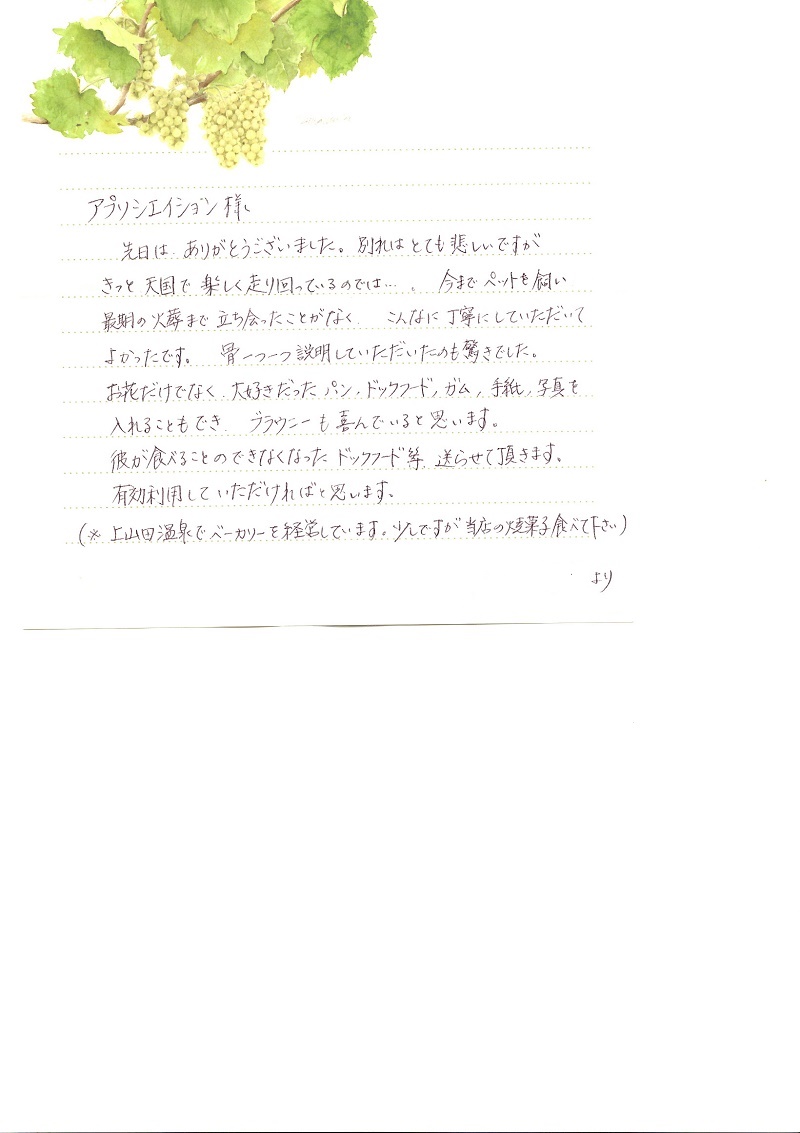 アプリシエイション様
先日は、ありがとうございました。別れはとても悲しいですが
きっと天国で楽しく走り回っているのでは…。今までペットを飼い
最期の火葬まで立ち会ったことがなく、こんなに丁寧にしていただいて
よかったです。骨一つ一つ説明していただいたのも驚きでした。
お花だけでなく、大好きだったパン、ドックフード、ガム、手紙、写真を
入れることもでき、ブラウニーも喜んでいると思います。
彼が食べることのできなくなったドックフード等、送らせて頂きます。
有効利用していただければと思います。
(※上山田温泉でベーカリーを経営しています。少しですが当店の焼菓子食べて下さい)
より